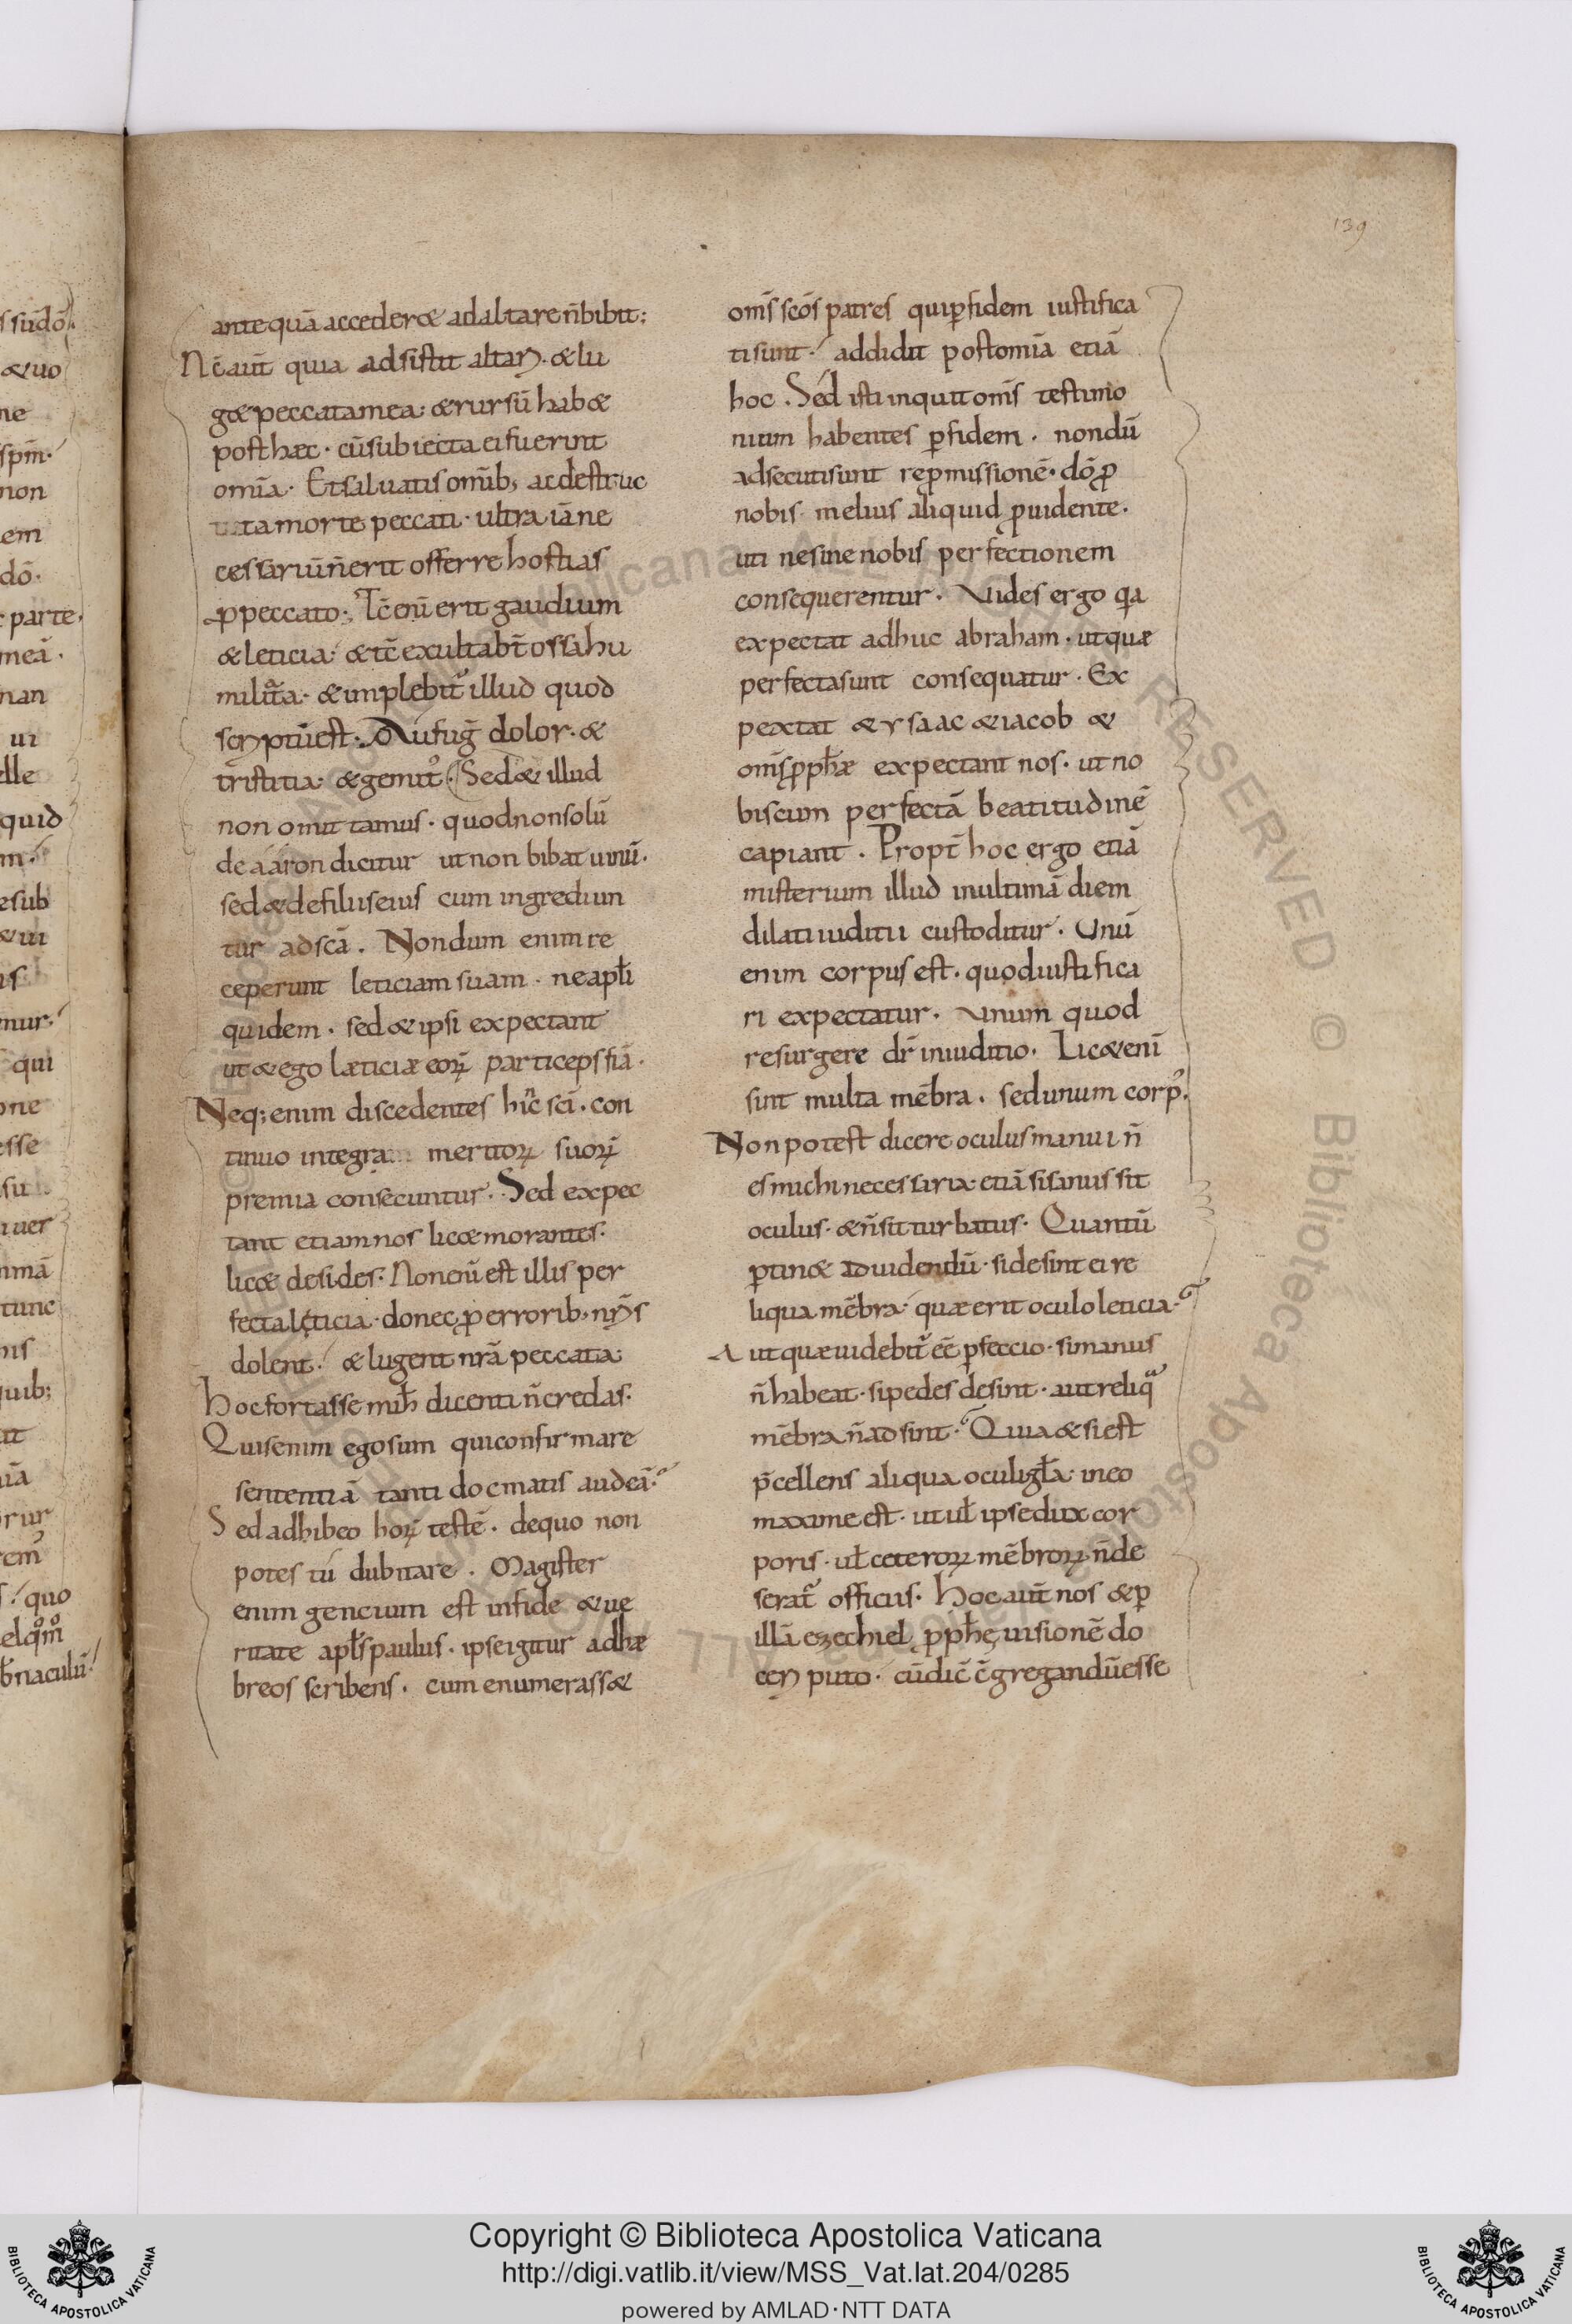 139
antequā accederet ad altare n̄ bibit:
Nc̄ aut̄ quia adsistit altari. & lu
g& peccata mea. & rursū hab&
post hæc. cū subiecta ei fuerint
omīa. Et saluatis omīb; ac destruc
ta morte peccati. ultra iā ne
cessariū n̄ erit offerre hostias
ꝓ peccato. Tc̄ enī erit gaudium
& leticia. & tc̄ exultabt̄ ossa hu
miliata. & implebit᷑ illud quod
scriptū est. Aufuḡ dolor. &
tristitia. & gemit᷒. Sed & illud
non omittamus. quod non solū
de aaron dicitur ut non bibat uinū.
sed & de filiis eius cum ingrediun
tur ad scā. Nondum enim re
ceperunt leticiam suam. ne apłi
quidem. sed & ipsi expectant
ut & ego læticiæ eoꝝ particeps fiā.
Neq; enim discedentes hīc scī. con
tinuo integra meritoꝝ suoꝝ
premia consecuntur. Sed expec
tant etiam nos licet morantes.
licet desides. Non enī est illis per
fecta lęticia. donec ꝓ errorib; nr̄is
dolent. & lugent nr̄a peccata.
Hoc fortasse mih̄ dicenti n̄ credas.
Quis enim ego sum qui confirmare
sententiā tanti docmatis audeā.
Sed adhibeo hoꝝ testē. de quo non
potes tú dubitare. Magister
enim gencium est in fide & ue
ritate apłs paulus. ipse igitur ad hæ
breos scribens. cum enumerass&
om̄s scōs patres qui ꝑ fidem iustifica
ti sunt. addidit post omīa etiā
hoc. Séd isti inquit om̄s testimo
nium habentes ꝑ fidem. nondū
adsecuti sunt repromissionē. dō ꝓ
nobis melius aliquid ꝓuidente.
uti ne sine nobis perfectionem
consequerentur. Vides ergo qa
expectat adhuc abraham. ut quæ
perfecta sunt consequatur. Ex
pextat & ysaac & iacob &
om̄s ꝓph̄æ expectant nos. ut no
biscum perfectā beatitudinē
capiant. Propt̄ hoc ergo etiā
misterium illud in ultimā diem
dilati iuditii custoditur. Unū
enim corpus est. quod iustifica
ri expectatur. Unum quod
resurgere dr̄ in iuditio. Lic& enī
sint multa mēbra. sed unum corp᷒.
Non potest dicere oculus manui n̄
es michi necessaria. etiā si sanus sit
oculus. & n̄ sit turbatus. Quantū
ꝑtin& ad uidendū. si desint ei re
liqua mēbra. quæ erit oculo leticia.
Aut quæ uidebit᷑ eē ꝑfeccio. si manus
n̄ habeat. si pedes desint. aut reliqa
mēbra n̄ adsint. Quia & si est
p̄cellens aliqua oculi gła. in eo
maxime est. ut uł ipse dux cor
poris. uł ceteroꝝ mēbroꝝ n̄ de
serat᷑ officiis. Hoc aut̄ nos & ꝑ
illā ezechiel ꝓph̄ę uisionē do
ceri puto. cū dic̄ c̄gregandū esse
s sūdō.
& uo
ne
spm̄.
non
em
dō.
parte.
meā.
nan
ui
elle
quid
m.
esub
& ui
us
nur.
qui
one
esse
sit
uer
mā
tunc
nis
uib;
it
iā
rur
quo
b̄naculū.
Copyright © Biblioteca Apostolica Vaticana
http://digi.vatlib.it/view/MSS_Vat.lat.204/0285
powered by AMLAD·NTT DATA
BIBLIOTECA APOSTOLICA VATICANA
BIBLIOTECA APOSTOLICA VATICANA